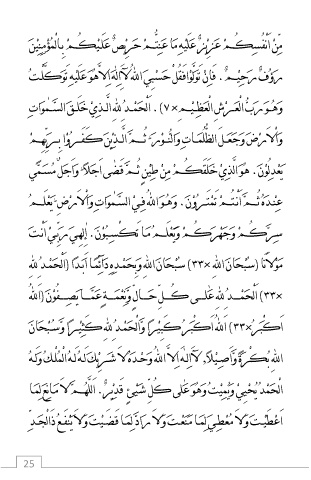 مِنْ اَنْفُسِكُمْ عَزِيْزٌ عَلَيْهِ مَا عَنِتُّمْ حَرِيْصٌ عَلَيْكُمْ بِالْمُؤْمِنِيْنَ
رَؤُفٌ رَحِيْمٌ . فَاِنْ تَوَلَّوْا فَقُلْ حَسْبِيَ اللهُ لَآ اِلٰهَ اِلَّا هُوَ عَلَيْهِ تَوَكَّلْتُ
وَهُوَ رَبُّ الْعَرْشِ الْعَظِيْمِ ×٧) . اَلْحَمْدُ لِلهِ الَّذِيْ خَلَقَ السَّمٰوَاتِ
وَالْاَرْضَ وَجَعَلَ الظُّلُمَاتِ وَالنُّوْرَ، ثُمَّ الَّذِيْنَ كَفَرُوْا بِرَبِّهِمْ
يَعْدِلُوْنَ . هُوَ الَّذِيْ خَلَقَكُمْ مِنْ طِيْنٍ ثُمَّ قَضٰى اَجَلًا وَاَجَلٌ مُسَمًّى
عِنْدَهُ ثُمَّ اَنْتُمْ تَمْتَرُوْنَ . وَهُوَ اللهُ فِي السَّمٰوَاتِ وَالْاَرْضِ، يَعْلَمُ
سِرَّكُمْ وَجَهْرَكُمْ وَيَعْلَمُ مَا تَكْسِبُوْنَ . اِلٰهِيْ يَا رَبِّيْ اَنْتَ
مَوْلَانَا (سُبْحَانَ اللهِ ×٣٣) سُبْحَانَ اللهِ وَبِحَمْدِهِ دَآئِمًا اَبَدًا (اَلْحَمْدُ لِلهِ
×٣٣) اَلْحَمْدُ لِلهِ عَلٰى كُلِّ حَالٍ وَنِعْمَةٍ عَمَّا يَصِفُوْنَ (اَللهُ
اَكْبَرُ ×٣٣) اَللهُ اَكْبَرُ كَبِيْرًا وَالْحَمْدُ لِلهِ كَثِيْرًا وَسُبْحَانَ
اللهِ بُكْرَةً وَّاَصِيْلًا، لَآ اِلٰهَ اِلَّا اللهُ وَحْدَهُ لَا شَرِيْكَ لَهُ لَهُ الْمُلْكُ وَلَهُ
الْحَمْدُ يُحْيِيْ وَيُمِيْتُ وَهُوَ عَلٰى كُلِّ شَيْئٍ قَدِيْرٌ . اَللّٰهُمَّ لَا مَانِعَ لِمَا
اَعْطَيْتَ وَلَا مُعْطِيَ لِمَا مَنَعْتَ وَلَا رَآدَّ لِمَا قَضَيْتَ وَلَا يَنْفَعُ ذَا الْجَدِّ
25